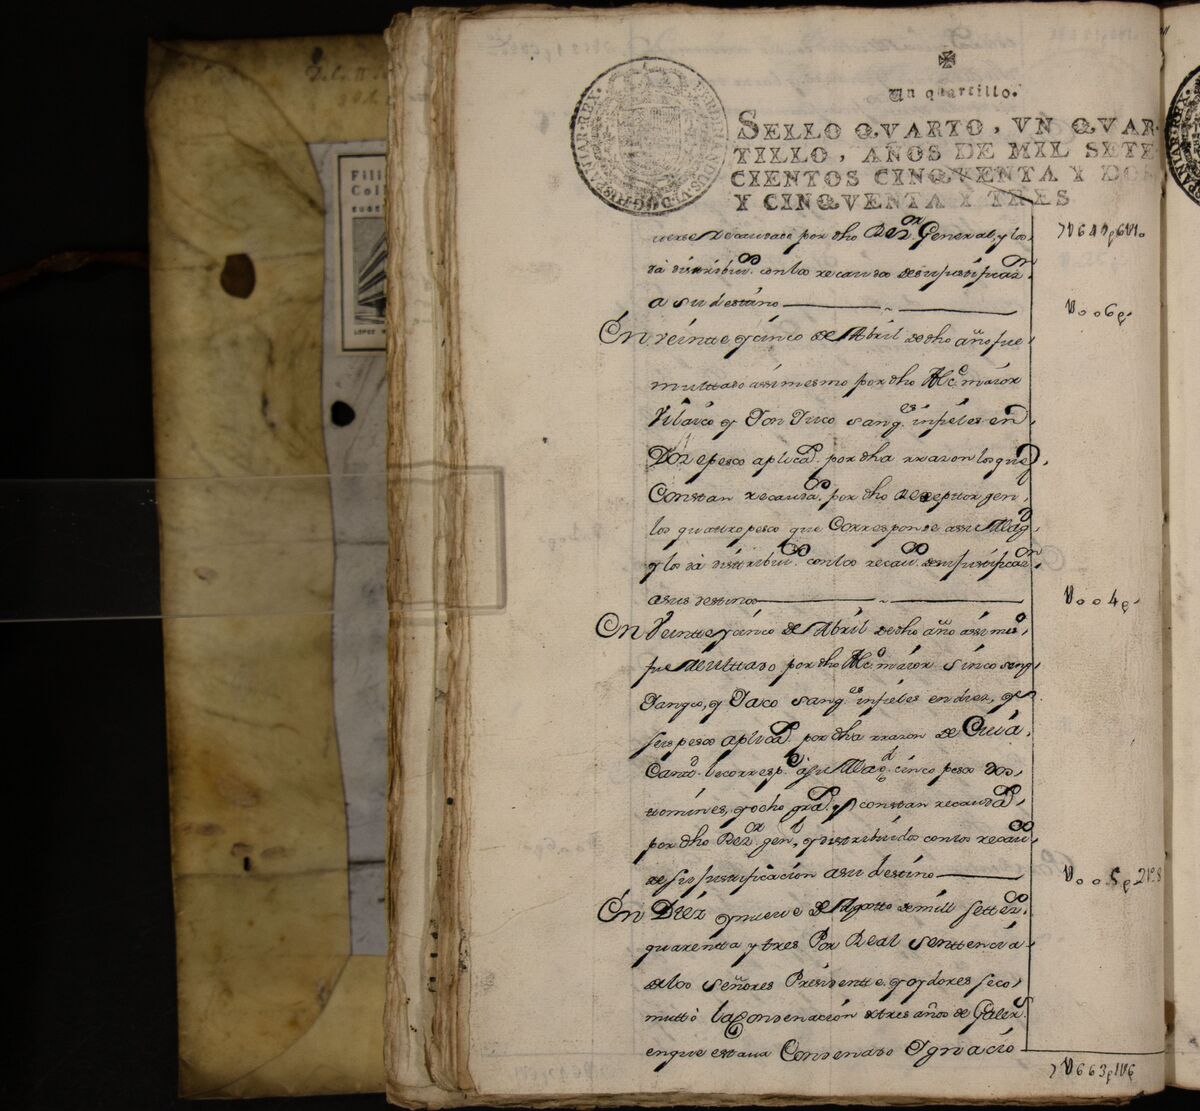 Un quartillo.
SELLO QVARTO, VN QVAR-
TILLO, AÑOS DE MIL SETE
CIENTOS CINQVENTA Y DOS
Y CINQVENTA Y TRES
FERDINANDUS VI D G HISPANIAR REX
Fili
Coll
recaudado por dho Rezor General, y los
dà distribuidos con los recaudos de su justificazon
a su destino
En veintte y cinco de Abril de dho año fue
multtado assimesmo por dho Alce maior
y Don Juco sanges infieles en
Doze pesos aplicados por dha rrazon los que
Constan recaudados por dho Rezeptor genl
los quattro pesos que Corresponde assu Magd
y los dà distribuidos con los recaudos de su justificazon
asus destinos
En Veintte y cinco de Abril de dho año assimismo
fue Multtado por dho Alce maior Sinco sangs
Tangco, y Jaco sanges infieles en diez, y
seis pesos aplicados por dha rrazon de Cuia
Cantd le corresp. à su Magd cinco pesos dos
ttomines, y ocho granos y constan recaudados
por dho Rezor genl, y distribuidos con los recaudos
de su justtificacion a su destino
En Diez y nueve de Agosto de mill settezos
quarentta y tres Por Real Senttencia
de los Señores Presidentte y oydores se co-
muttò la Condenacion de tres años de Galera
en que estava Condenado Ygnacio
U006p.
U004p.
U005p.2t.8
U663p1t6